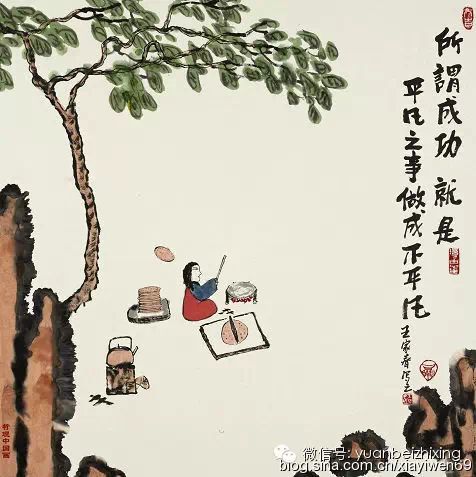 所謂成功 就是
平凡之事做成不平凡
王家春写之
中国画
微信号: yuanbeizhixing
blog.sina.com.cn/xiayiwen69